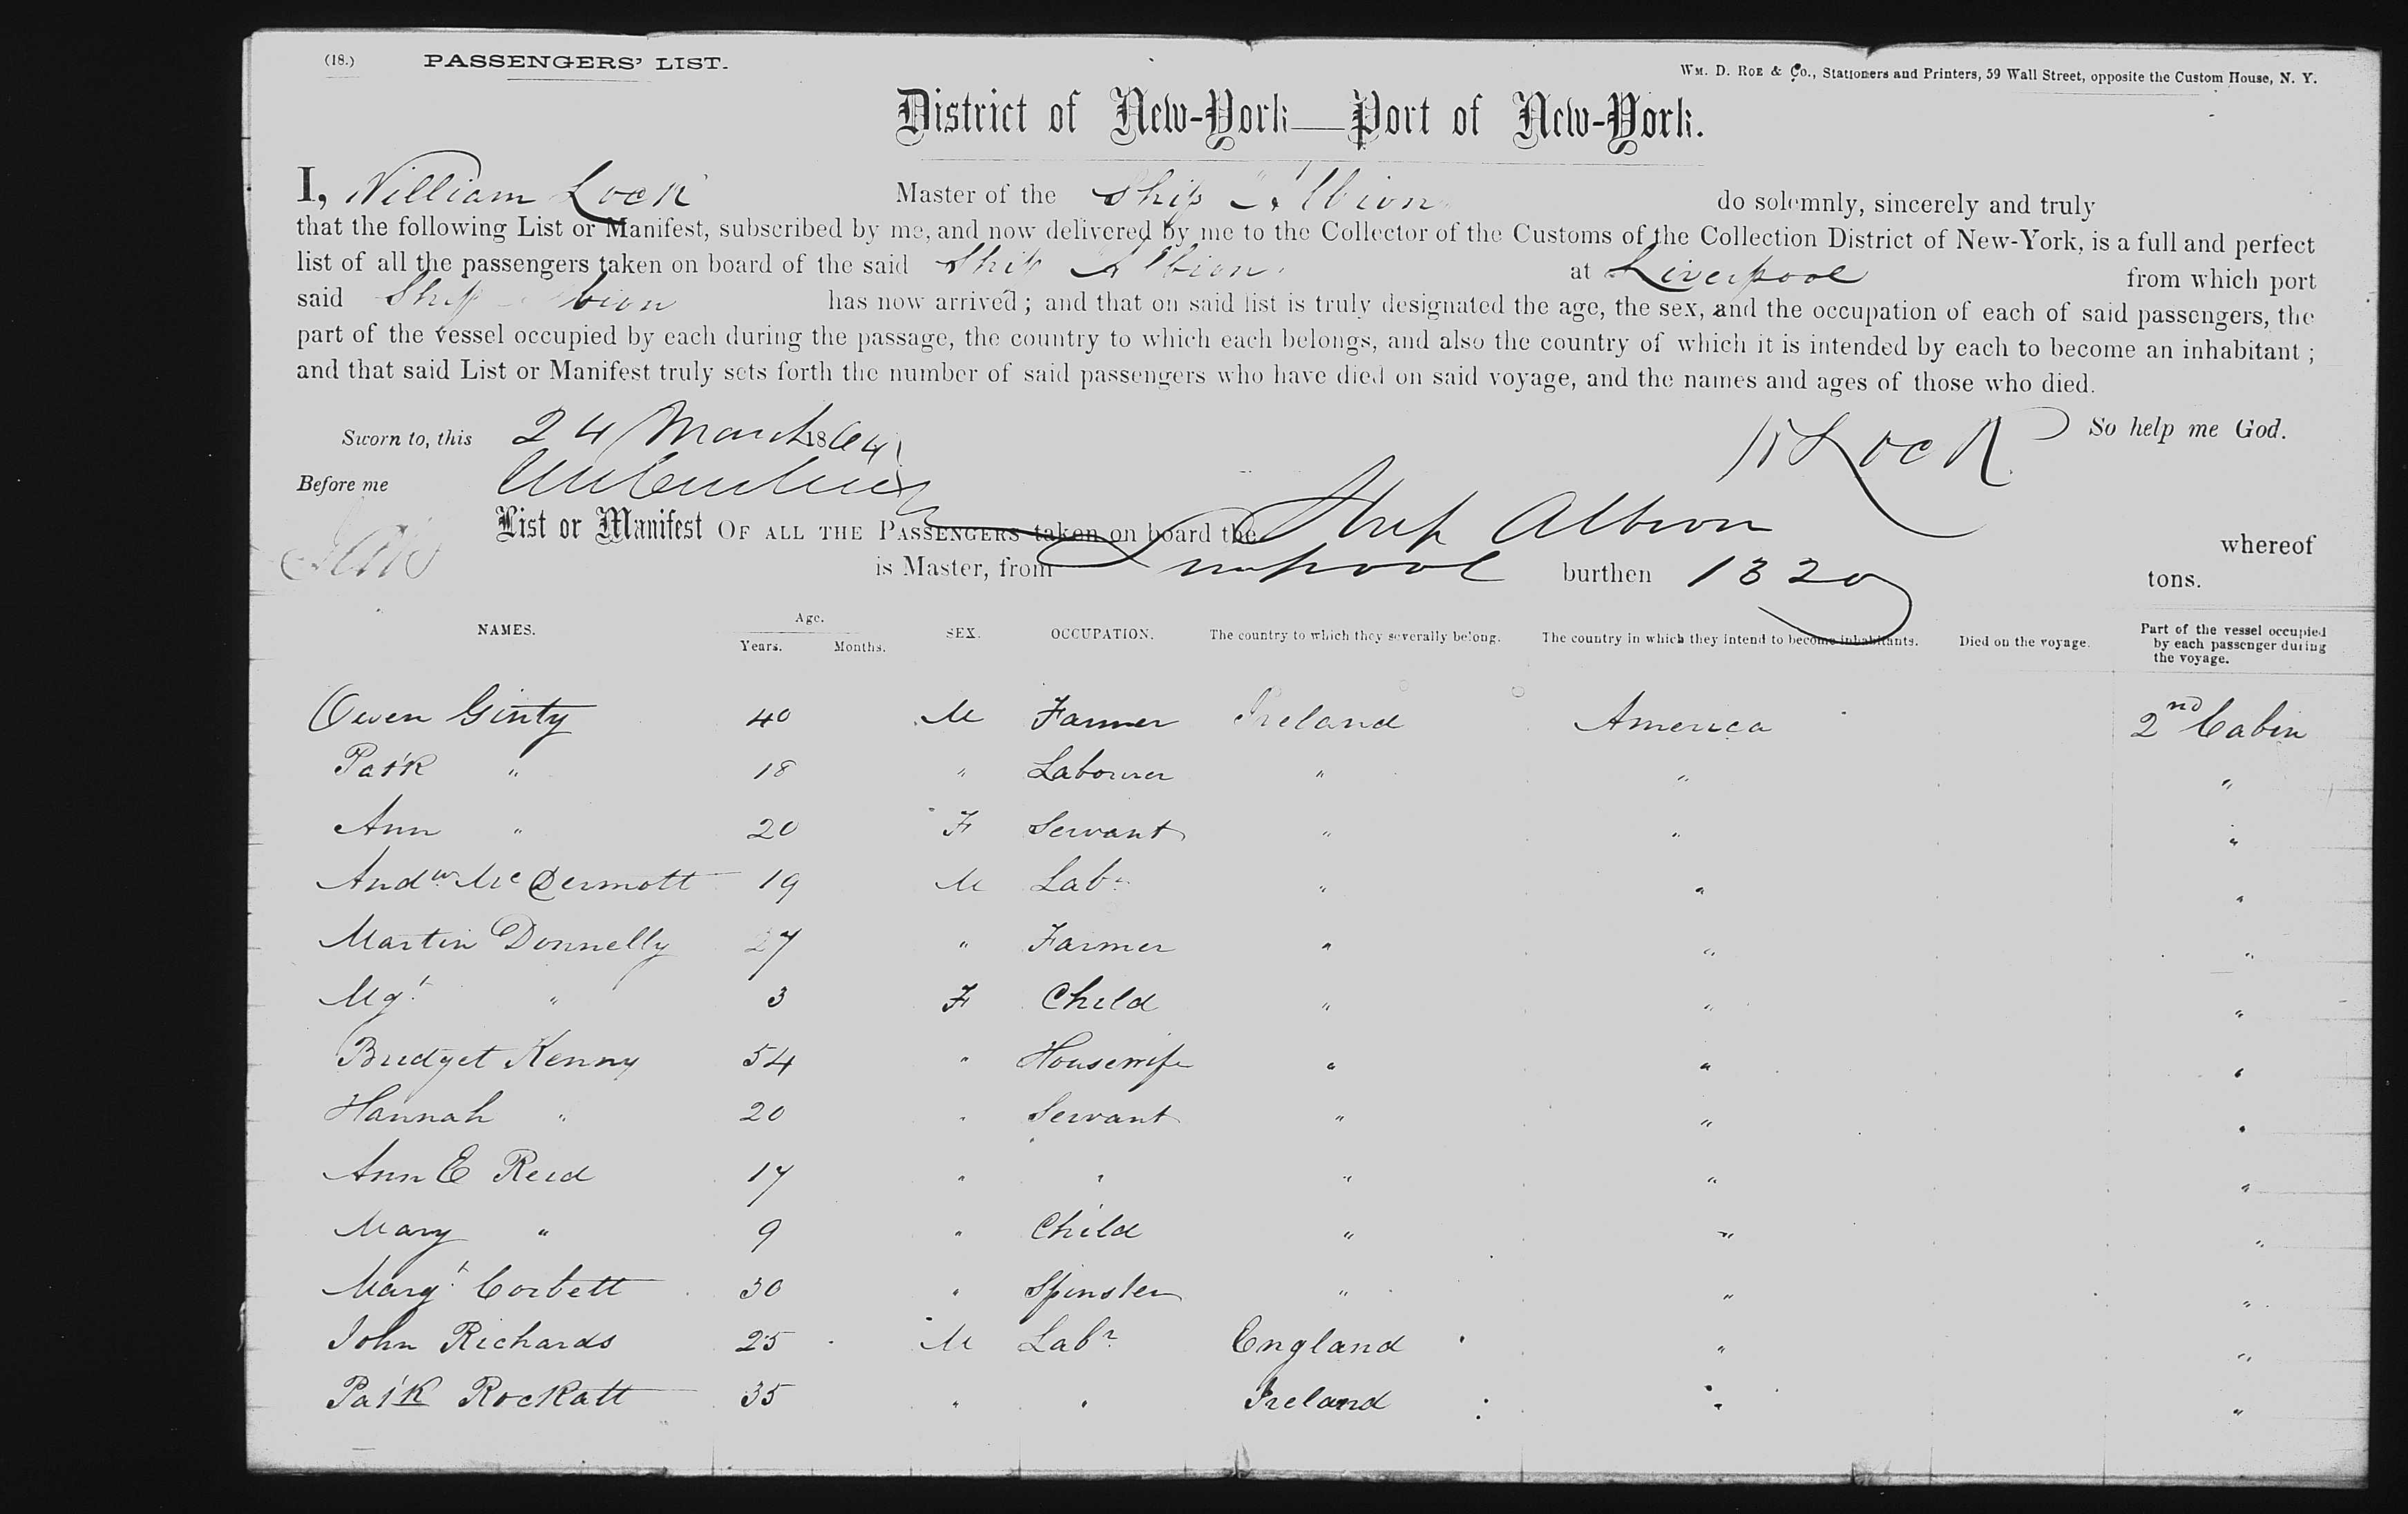 (18.) PASSENGERS' LIST. Wm. D. Roe & Co., Stationers and Printers, 59 Wall Street, opposite the Custom House, N. Y.
District of New-York—Port of New-York.
I, William Lock Master of the Ship Albion do solemnly, sincerely and truly
that the following List or Manifest, subscribed by me, and now delivered by me to the Collector of the Customs of the Collection District of New-York, is a full and perfect
list of all the passengers taken on board of the said Ship Albion at Liverpool from which port
said Ship Albion has now arrived; and that on said list is truly designated the age, the sex, and the occupation of each of said passengers, the
part of the vessel occupied by each during the passage, the country to which each belongs, and also the country of which it is intended by each to become an inhabitant;
and that said List or Manifest truly sets forth the number of said passengers who have died on said voyage, and the names and ages of those who died.
Sworn to, this 24 March 1864 W Lock So help me God.
Before me
List or Manifest OF ALL THE PASSENGERS taken on board the Ship Albion whereof
is Master, from Liverpool burthen 1320 tons.
NAMES. Age. Years. Months. SEX. OCCUPATION. The country to which they severally belong. The country in which they intend to become inhabitants. Died on the voyage. Part of the vessel occupied by each passenger during the voyage.
Owen Ginty 40 M Farmer Ireland America 2nd Cabin
Patk " 18 " Labourer " " "
Ann " 20 F Servant " " "
Andw McDermott 19 M Labr " " "
Martin Donnelly 27 " Farmer " " "
Mgt " 3 F Child " " "
Bridget Kenny 54 " Housewife " " "
Hannah " 20 " Servant " " "
Ann E Reid 17 " " " " "
Mary " 9 " Child " " "
Margt Corbett 30 " Spinster " " "
John Richards 25 M Labr England " "
Patk Rockatt 35 " " Ireland " "